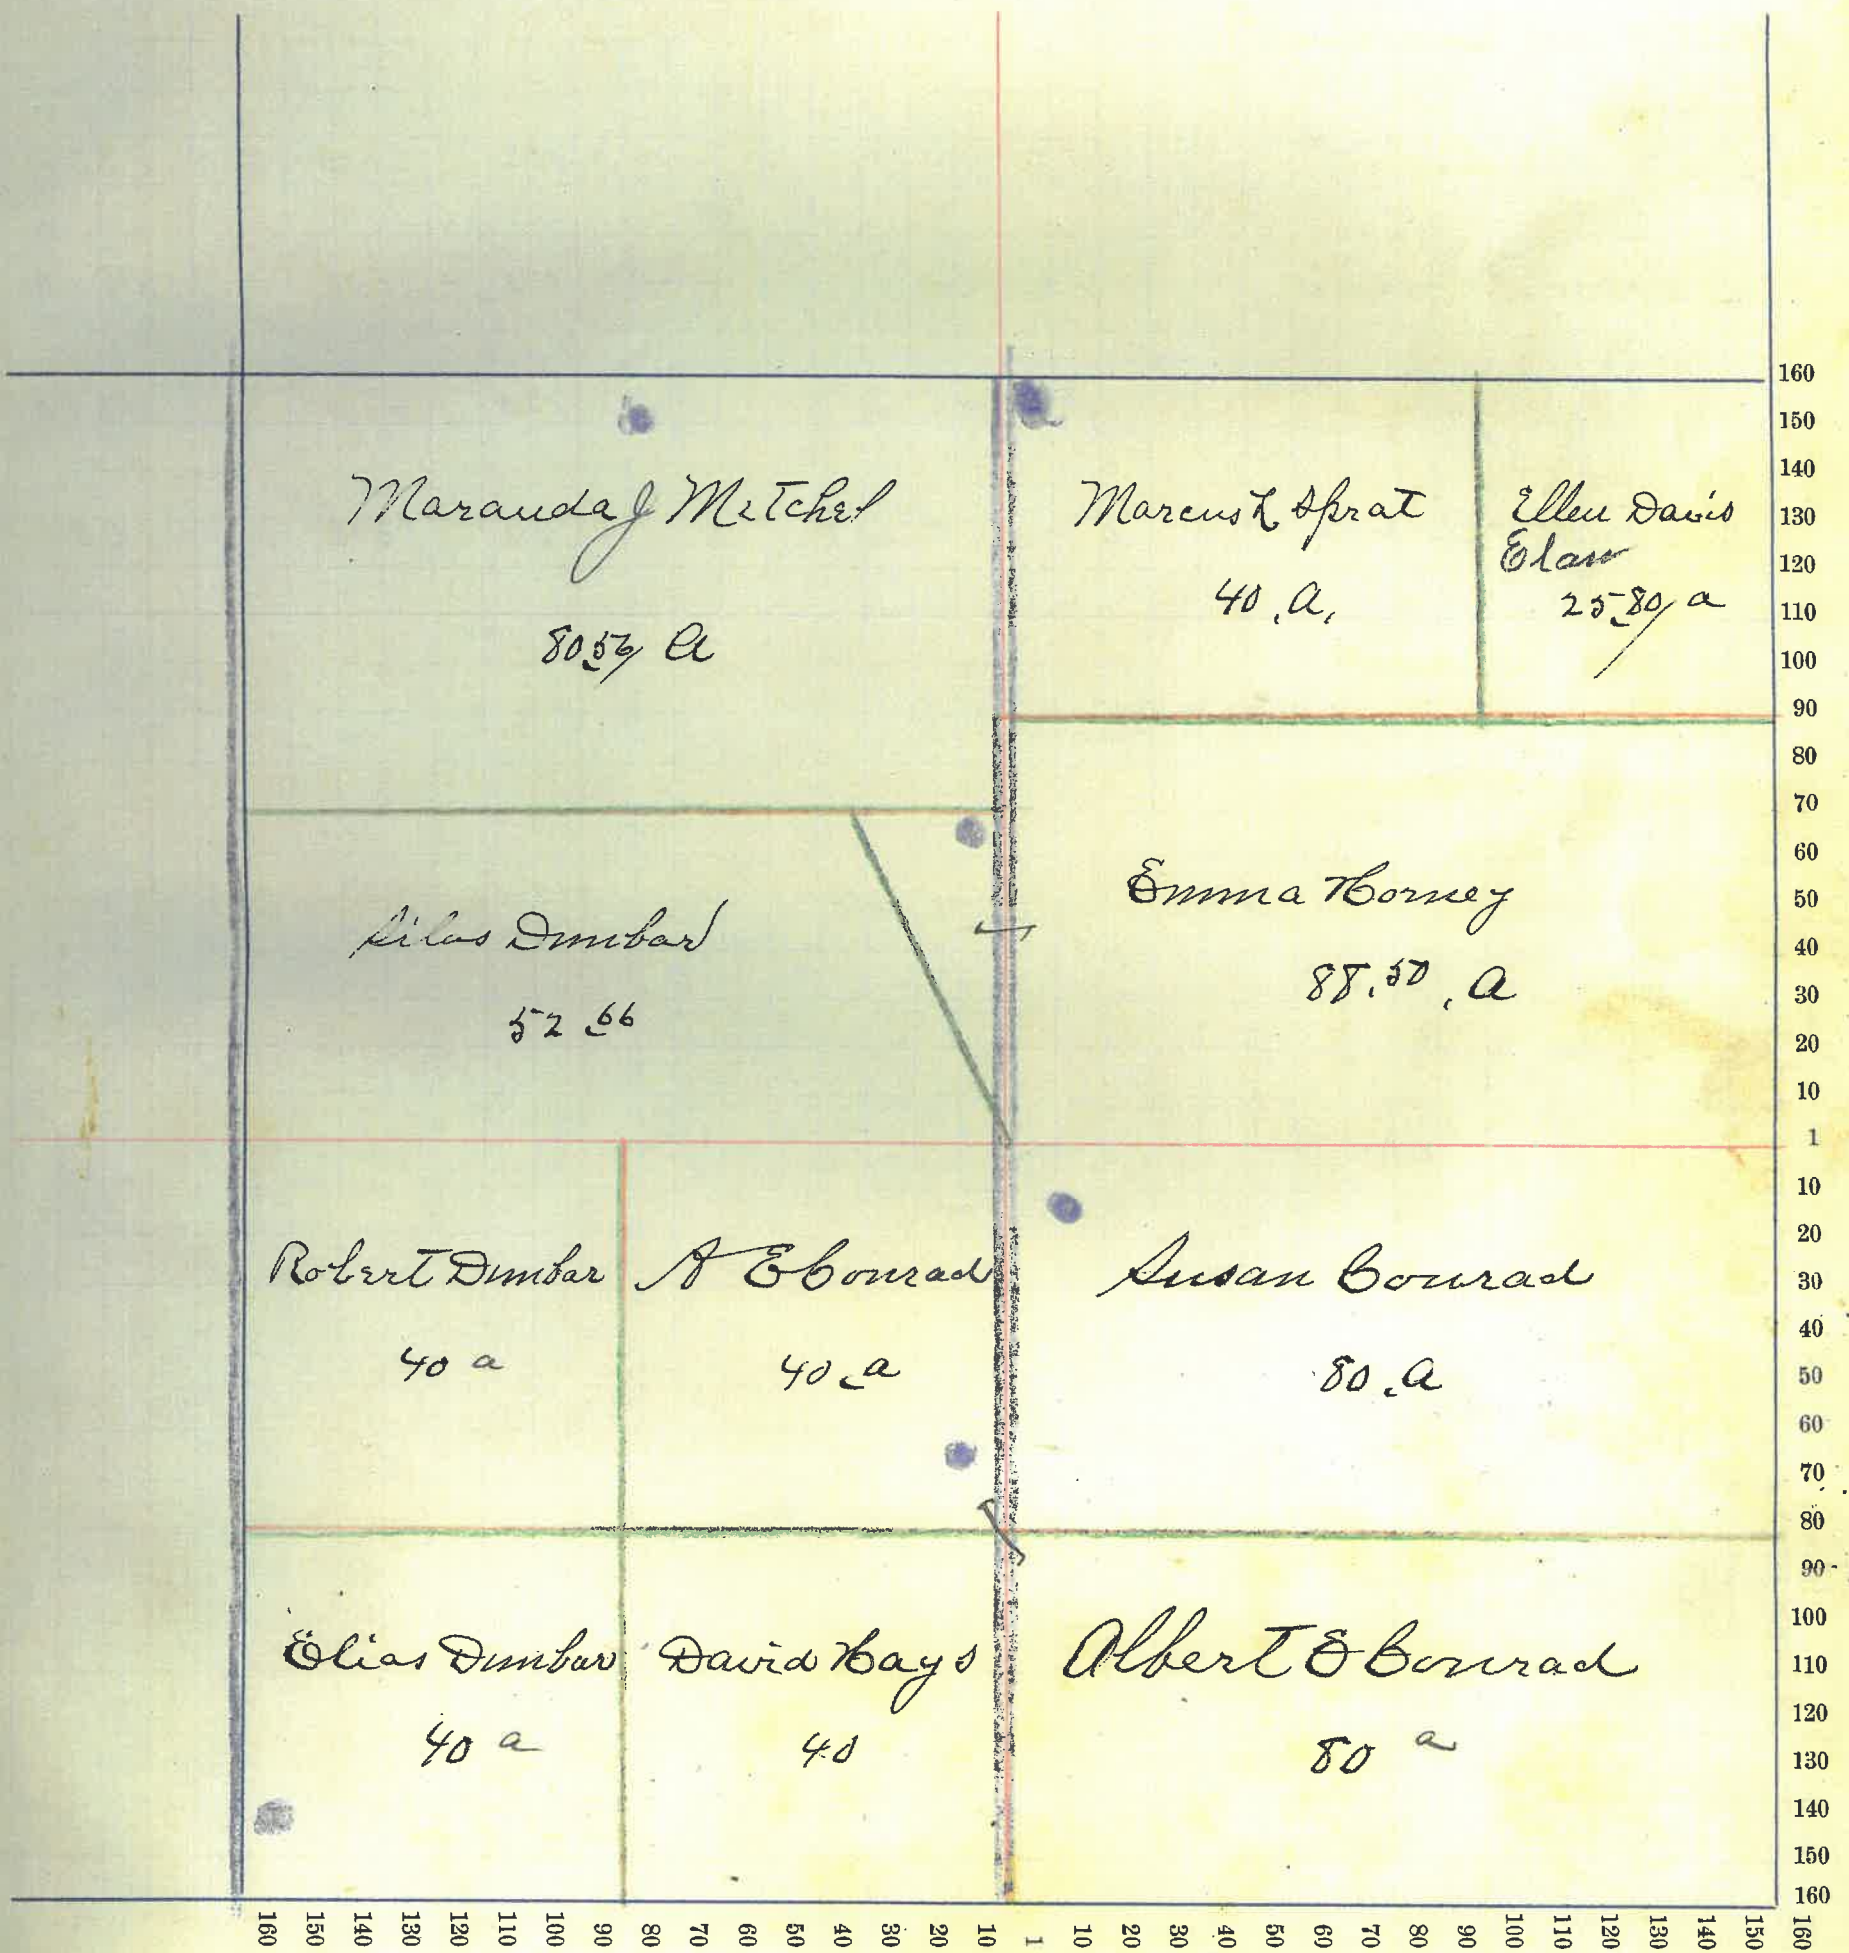 Maranda J Mitchel
80.56/ A
Marcus L Sprat
40.A.
Ellen Davis
Elam
25.80/ a
Silas Dunbar
52.66
Emma Horney
88.50.A
Robert Dunbar
40 a
A E Conrad
40.a
Susan Conrad
80.A
Elias Dunbar
40 a
David Hays
40
Albert E Conrad
80 a
160
150
140
130
120
110
100
90
80
70
60
50
40
30
20
10
1
10
20
30
40
50
60
70
80
90
100
110
120
130
140
150
160
160 150 140 130 120 110 100 90 80 70 60 50 40 30 20 10 1 10 20 30 40 50 60 70 80 90 100 110 120 130 140 150 160